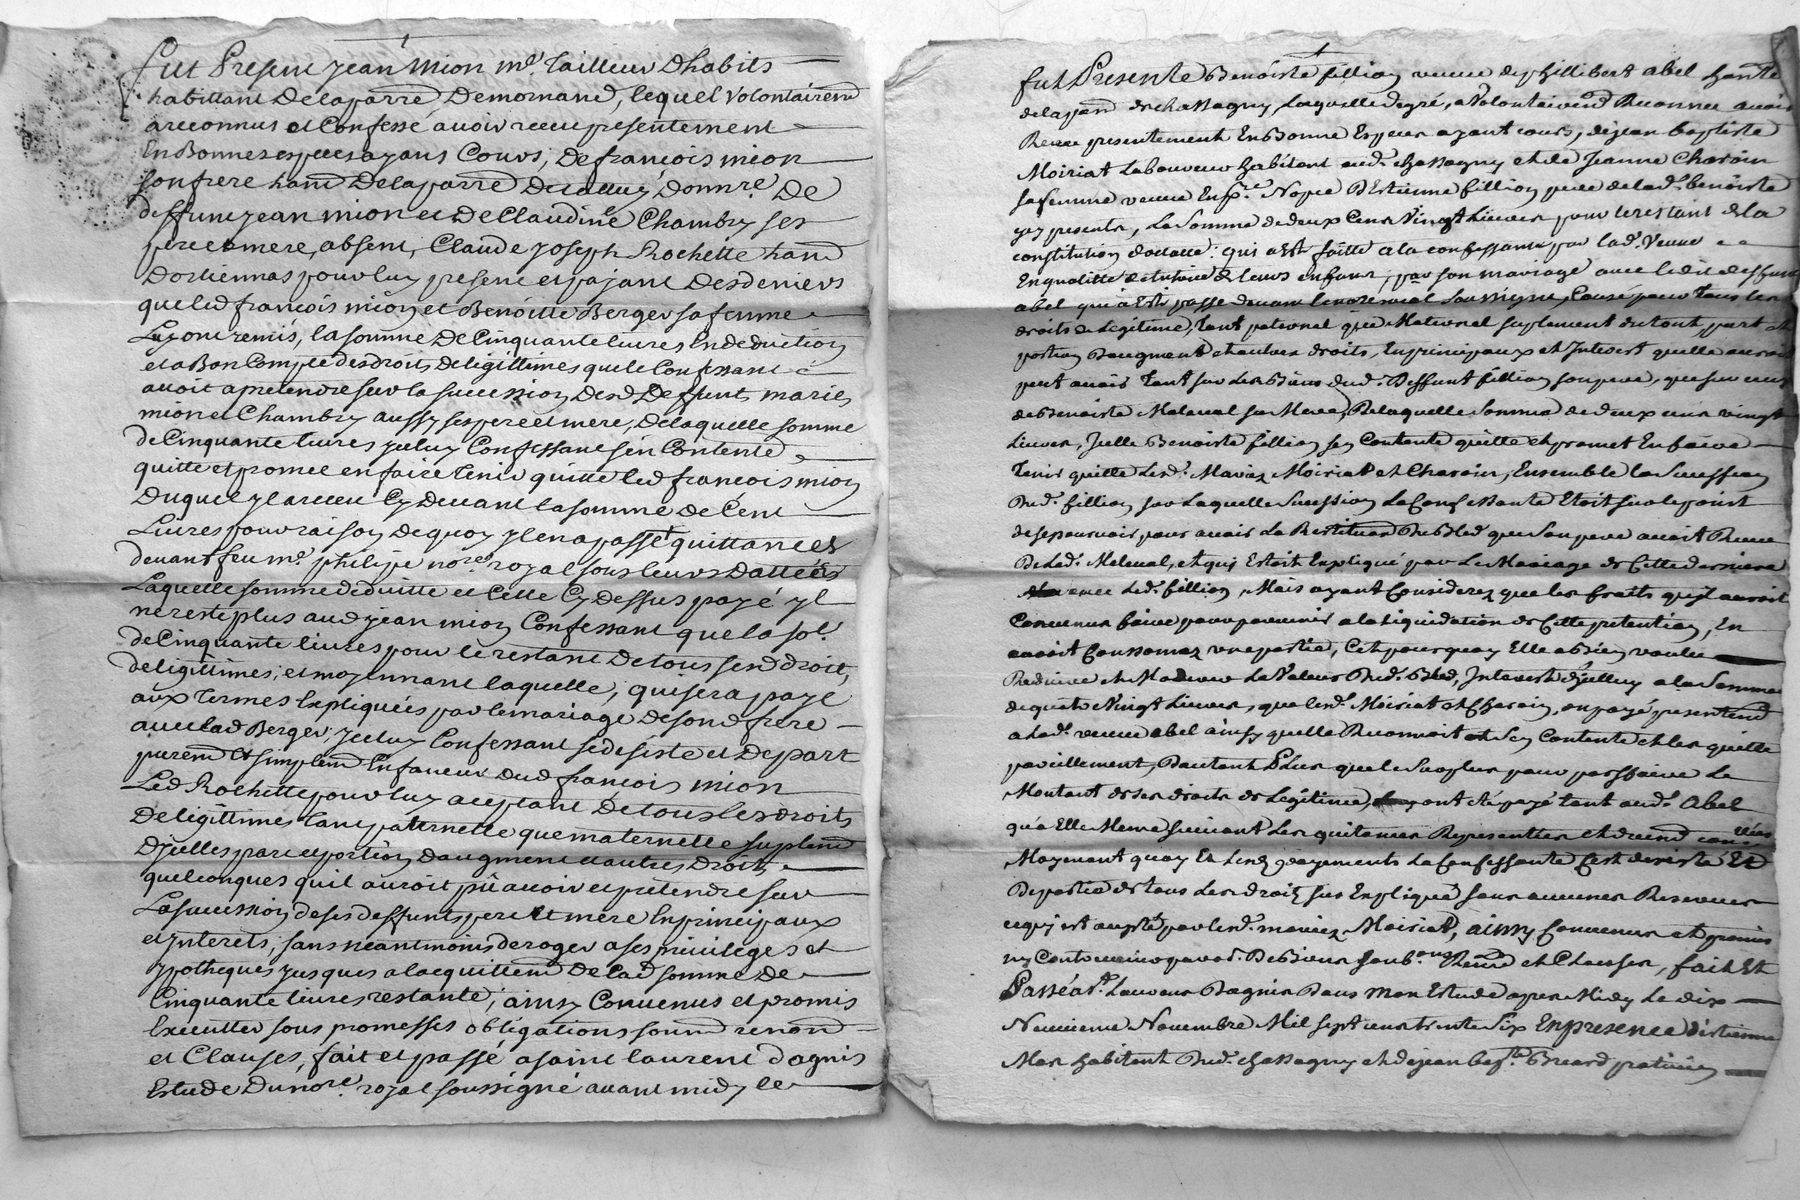 Fut Present jean mion me. Tailleur Dhabits
habittant Delaparre Demornand, lequel volontairemd
a reconnus et Confessé avoir receu presentement
En Bonnes especes ayans Cours, De francois mion
son frere hand Delaparre De DonnRe De
deffunt jean mion et De Claudine Chambry ses
pere et mere, absent, Claude joseph Rochette hand
Dortiennas pour luy present et payant Des deniers
que led francois mion et Benoitte Berger sa femme
Luy ont remis, la somme De Cinquante livres En deduction
et a Bon Compte des droits De legittimes que le Confessant
avoit a pretendre sur la succession Desd Deffunts maries
mion et Chambry aussy ses pere et mere, De laquelle somme
de Cinquante livres yceluy Confessant s'en Contente
quitte et promet en faire tenir quitte led francois mion
Duquel yl a receu Cy Devant la somme de Cent
Livres pour raison de quoy yl en a passé quittances
devant feu me. philipe nore. royal sous leurs Dattes
Laquelle somme deduitte et Celle Cy Dessus payé yl
ne reste plus aud jean mion Confessant que la sol.
de Cinquante livres pour le restant De tous sesd droits
de legittimes, et moyennant laquelle, qui sera payé
aux Termes Expliquées par le mariage De sond frere
avec lad Berger, yceluy Confessant se desiste et Depart
puremd Et simplemd En faveur dud francois mion
Led Rochette pour luy aceptant De tous les droits
De legittimes tant paternelle que maternelle suplemd
D'ycelles part et portion Daugment et autres Droits
quelconques quil auroit pû avoir et pretendre sur
La succession de ses deffunts pere Et mere En principaux
et Interets, sans neantmoins deroger a ses privileges et
ypotheques jusques a lacquittemd De lad somme De
Cinquante livres restante, ainsy Convenus et promis
Executter sous promesses obligations soumd renond
et Clauses, fait et passé a saint laurent dagnis
Estude Du nore. royal soussigné avant midy le
Fut Presente Benoiste fillion veuve de phillibert abel hante
de la parr de chassagny, Laquelle degré, a Volontairemd Reconnu avoir
Receu presentement En Bonne Espece ayant cours, de jean baptiste
Moiriat Laboureur habitant aud. chassagny et de Jeanne Charoin
sa femme veuve En pre. Nopce D'Estienne fillion pere de lad. benoiste
yey presents, La Somme de deux Cens Vingt Livres pour le restant de la
constitution dotalle qui a Esté faitte a la confessante par lad. Veuve
En qualitte de tutrice de leurs enfans, par son mariage avec ledit deffunt
abel qui a Esté passé devant le notre royal Soussigné, Causé pour Tous les
droits de Legitime, tant paternel que Maternel suplement de tout part et
portion Daugment et autres droits, En principaux et Interest quelle auroit
peut avoir tant sur Les Biens dud. Deffunt fillion son pere, que sur ceux
de Benoiste Malaval sa Mere, De laquelle Somme de deux cens vingt
Livres, Icelle Benoiste fillion s'en Contente quitte et promet En faire
Tenir quitte Lesd. Mariez Moiriat et Charoin, Ensemble la Succession
Dud. fillion sur Laquelle Succession La Confessante Etoit sur le point
de se pourvoir pour avoir La Restitution Du Bled que Son pere avoit Receu
De Lad. Malaval, et qui Estoit Expliqué par Le Mariage de Cette derniere
avec Led. fillion, Mais ayant Considerez que les fraits quyl auroit
Convenus faire pour parvenir a la Liquidation de Cette pretention, En
auroit Consommez vne partie, C'est pourquoy Elle a bien voulu
Reduire et Moderer La Valeur Dud. Bled, Interest d'Icelluy a la Somme
de quatre Vingt Livres, que lesd. Moiriat et Charoin, on payé presentemd
a Lad. veuve abel ainsy quelle Reconnoit et s'en Contente et les quitte
pareillement, Dautant Plus que le Surplus pour parfaire Le
Montant de ses droits de Legitime, ont été payé tant aud. Abel
qu'a Elle Meme suivant Les quitances Representées et
Moyenant quoy Et Lesd payements La Confessante s'est desisté Et
Departie de tous Les droits sus Expliqué sans aucunes Reserves
ce qui est acepté par lesd. mariez Moiriat, ainsy Convenus et promis
ny Contrevenir Des Biens Soub ons Renond et Clauses, fait Et
Passé a St. Laurens Dagnis Dans Mon Estude apres Midy Le dix
Neuvieme Novembre Mil sept cens trente Six En presence d'Estienne
Mas habitant Dud. chassagny et de jean bapte. Brcard praticien